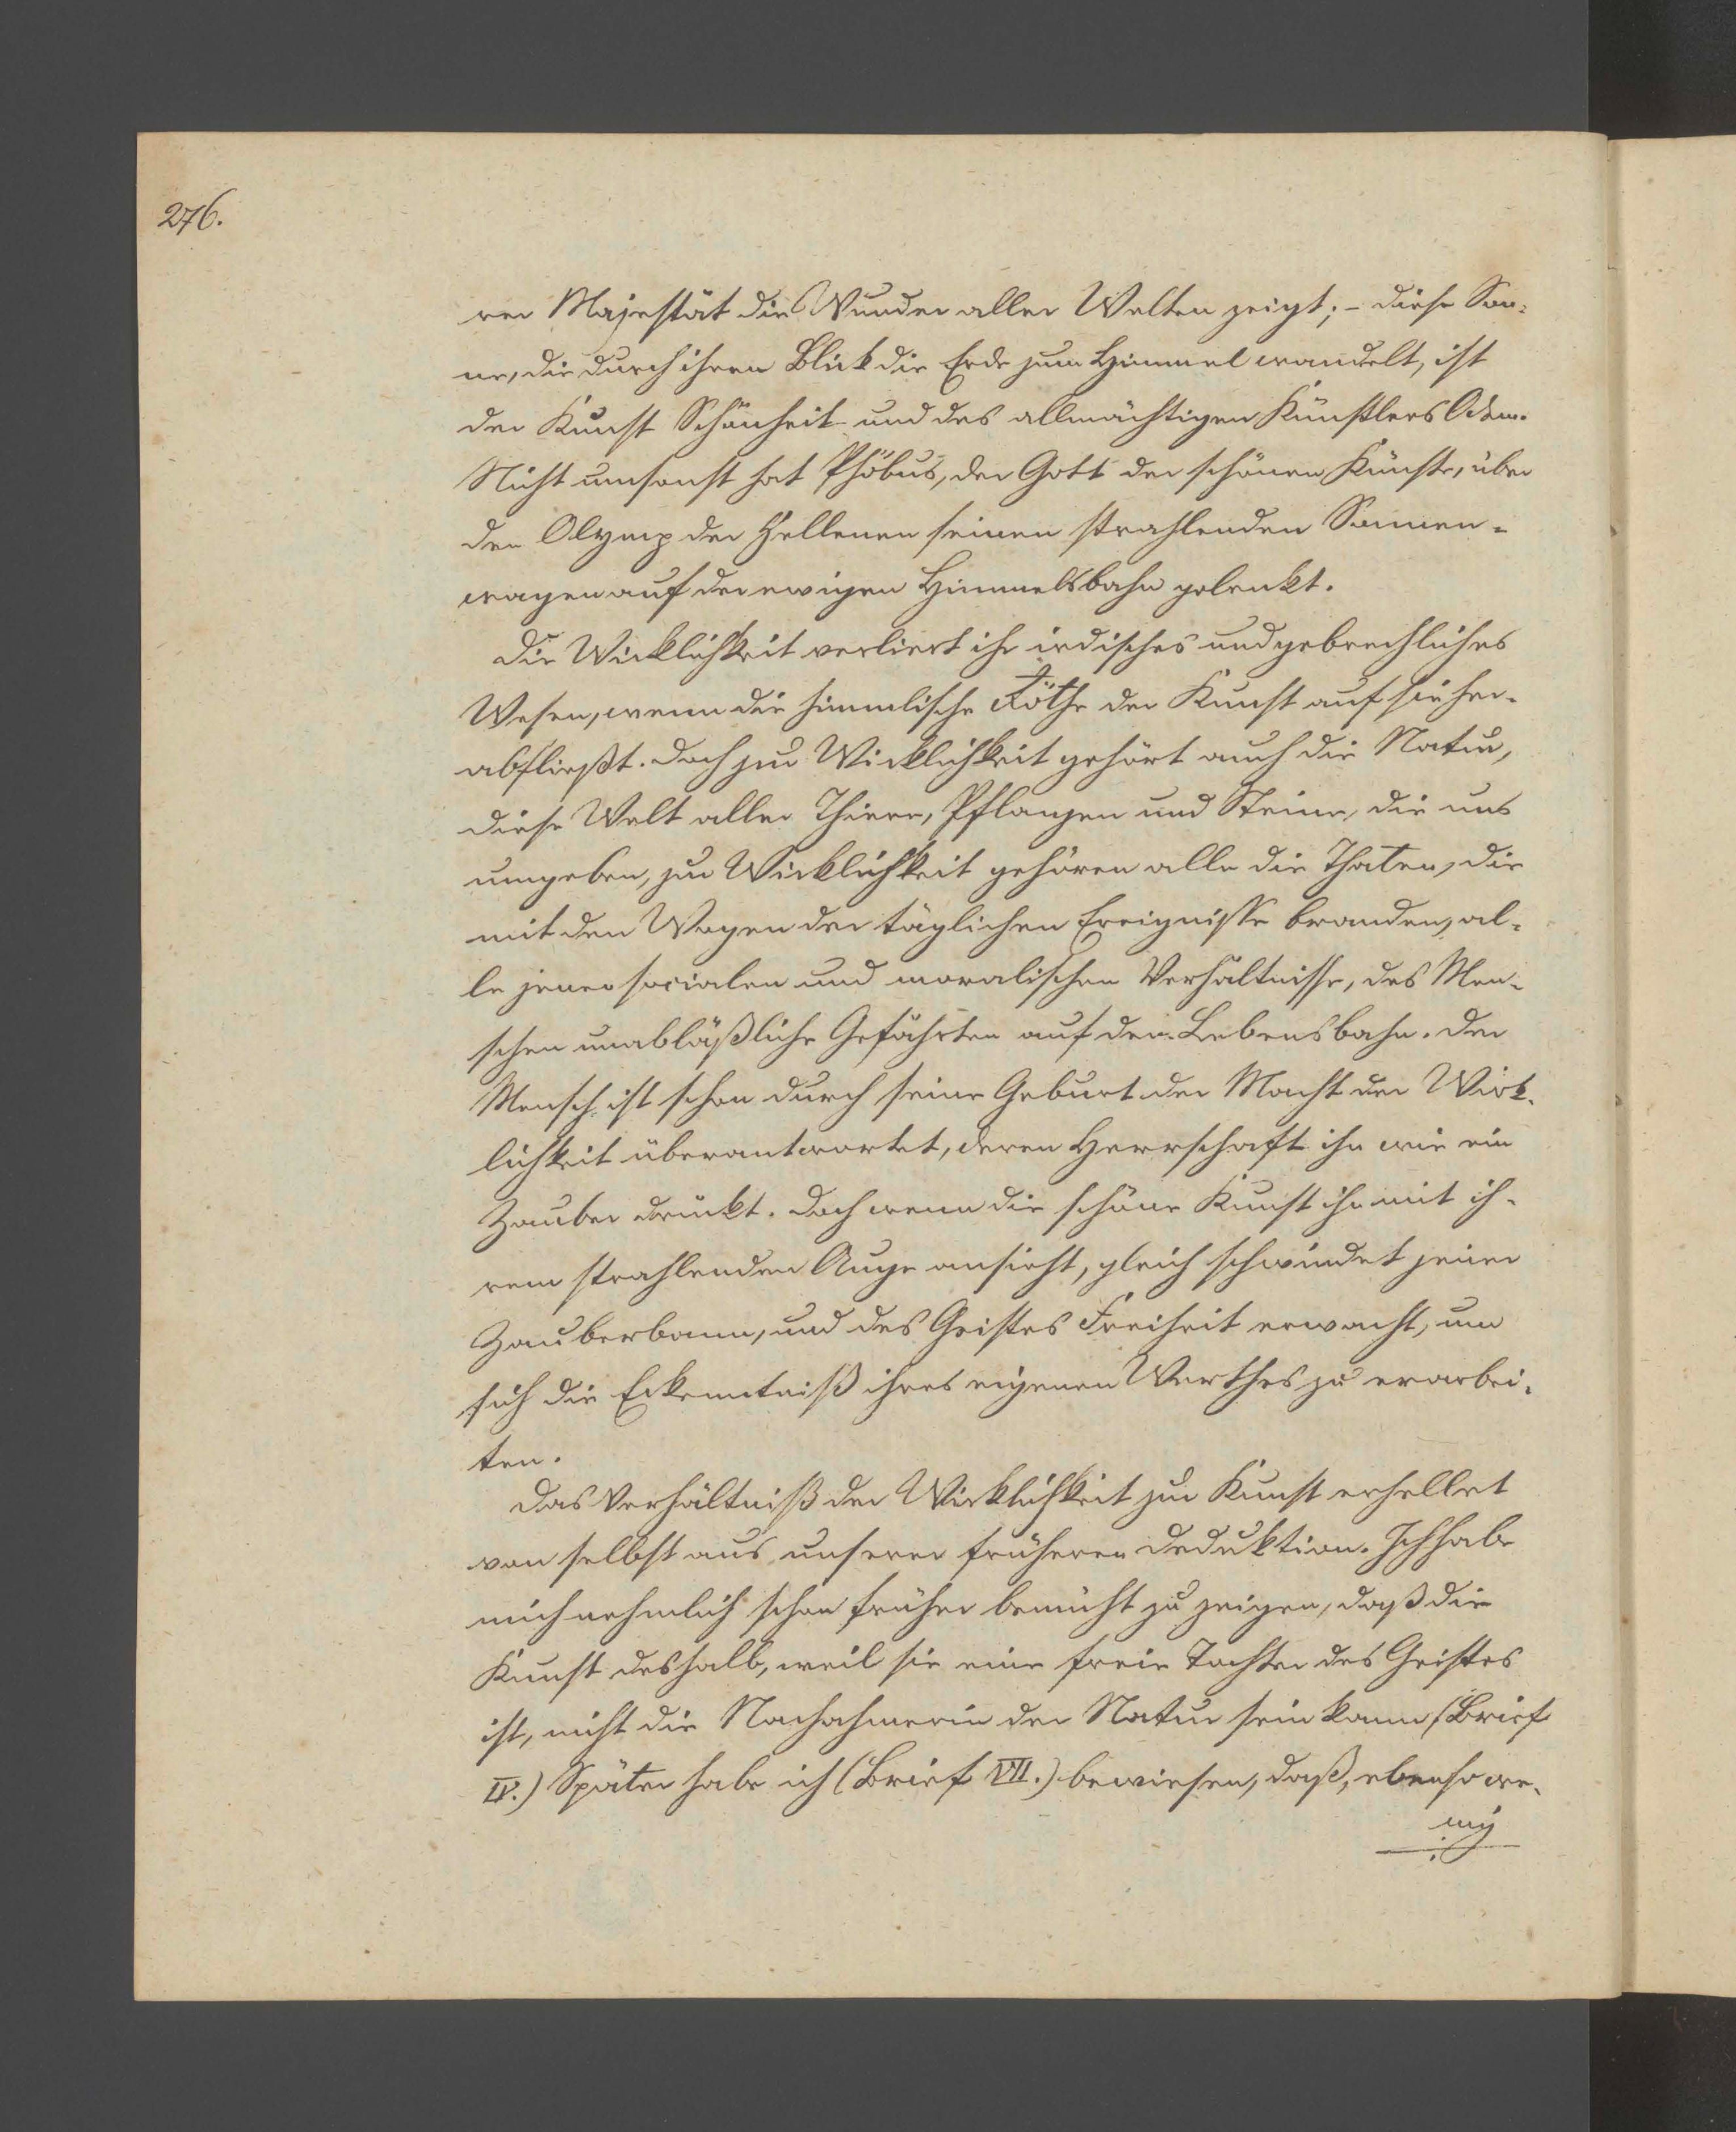 276.
rer Majestät die Wunder aller Welten zeigt; – diese Son-
ne, die durch ihren Blick die Erde zum Himmel wandelt, ist
der Kunst Schönheit und des allmächtigen Künstlers Odem.
Nicht umsonst hat Phöbus, der Gott der schönen Künste, über
den Olymp der Hellenen seinen strahlenden Sonnen-
wagen auf der ewigen Himmelsbahn gelenkt.
Die Wirklichkeit verliert ihr irdisches und gebrechliches
Wesen, wenn die himmlische Röthe der Kunst auf sie her-
abfließt. Doch zur Wirklichkeit gehört auch die Natur,
diese Welt aller Thiere, Pflanzen und Steine, die uns
umgeben, zur Wirklichkeit gehören alle die Thaten, die
mit den Wogen der täglichen Ereignisse branden, al-
le jener socialen und moralischen Verhältnisse, des Men-
schen unabläßliche Gefährten auf der Lebensbahn. Der
Mensch ist schon durch seine Geburt der Macht der Wirk-
lichkeit überantwortet, deren Herrschaft ihn wie ein
Zauber drückt. Doch wenn die schöne Kunst ihn mit ih-
rem strahlenden Auge ansieht, gleich schwindet jener
Zauberbann, und des Geistes Freiheit erwacht, um
sich die Erkenntniß ihres eigenen Werthes zu erarbei-
ten.
Das Verhältniß der Wirklichkeit zur Kunst erhellet
von selbst aus unserer früheren Deduktion. Ich habe
mich nehmlich schon früher bemüht zu zeigen, daß die
Kunst deshalb, weil sie eine freie Tochter des Geistes
ist, nicht die Nachahmerin der Natur sein kann (Brief
IV.) Später habe ich (Brief VII.) bewiesen, daß, ebenso we-
nig